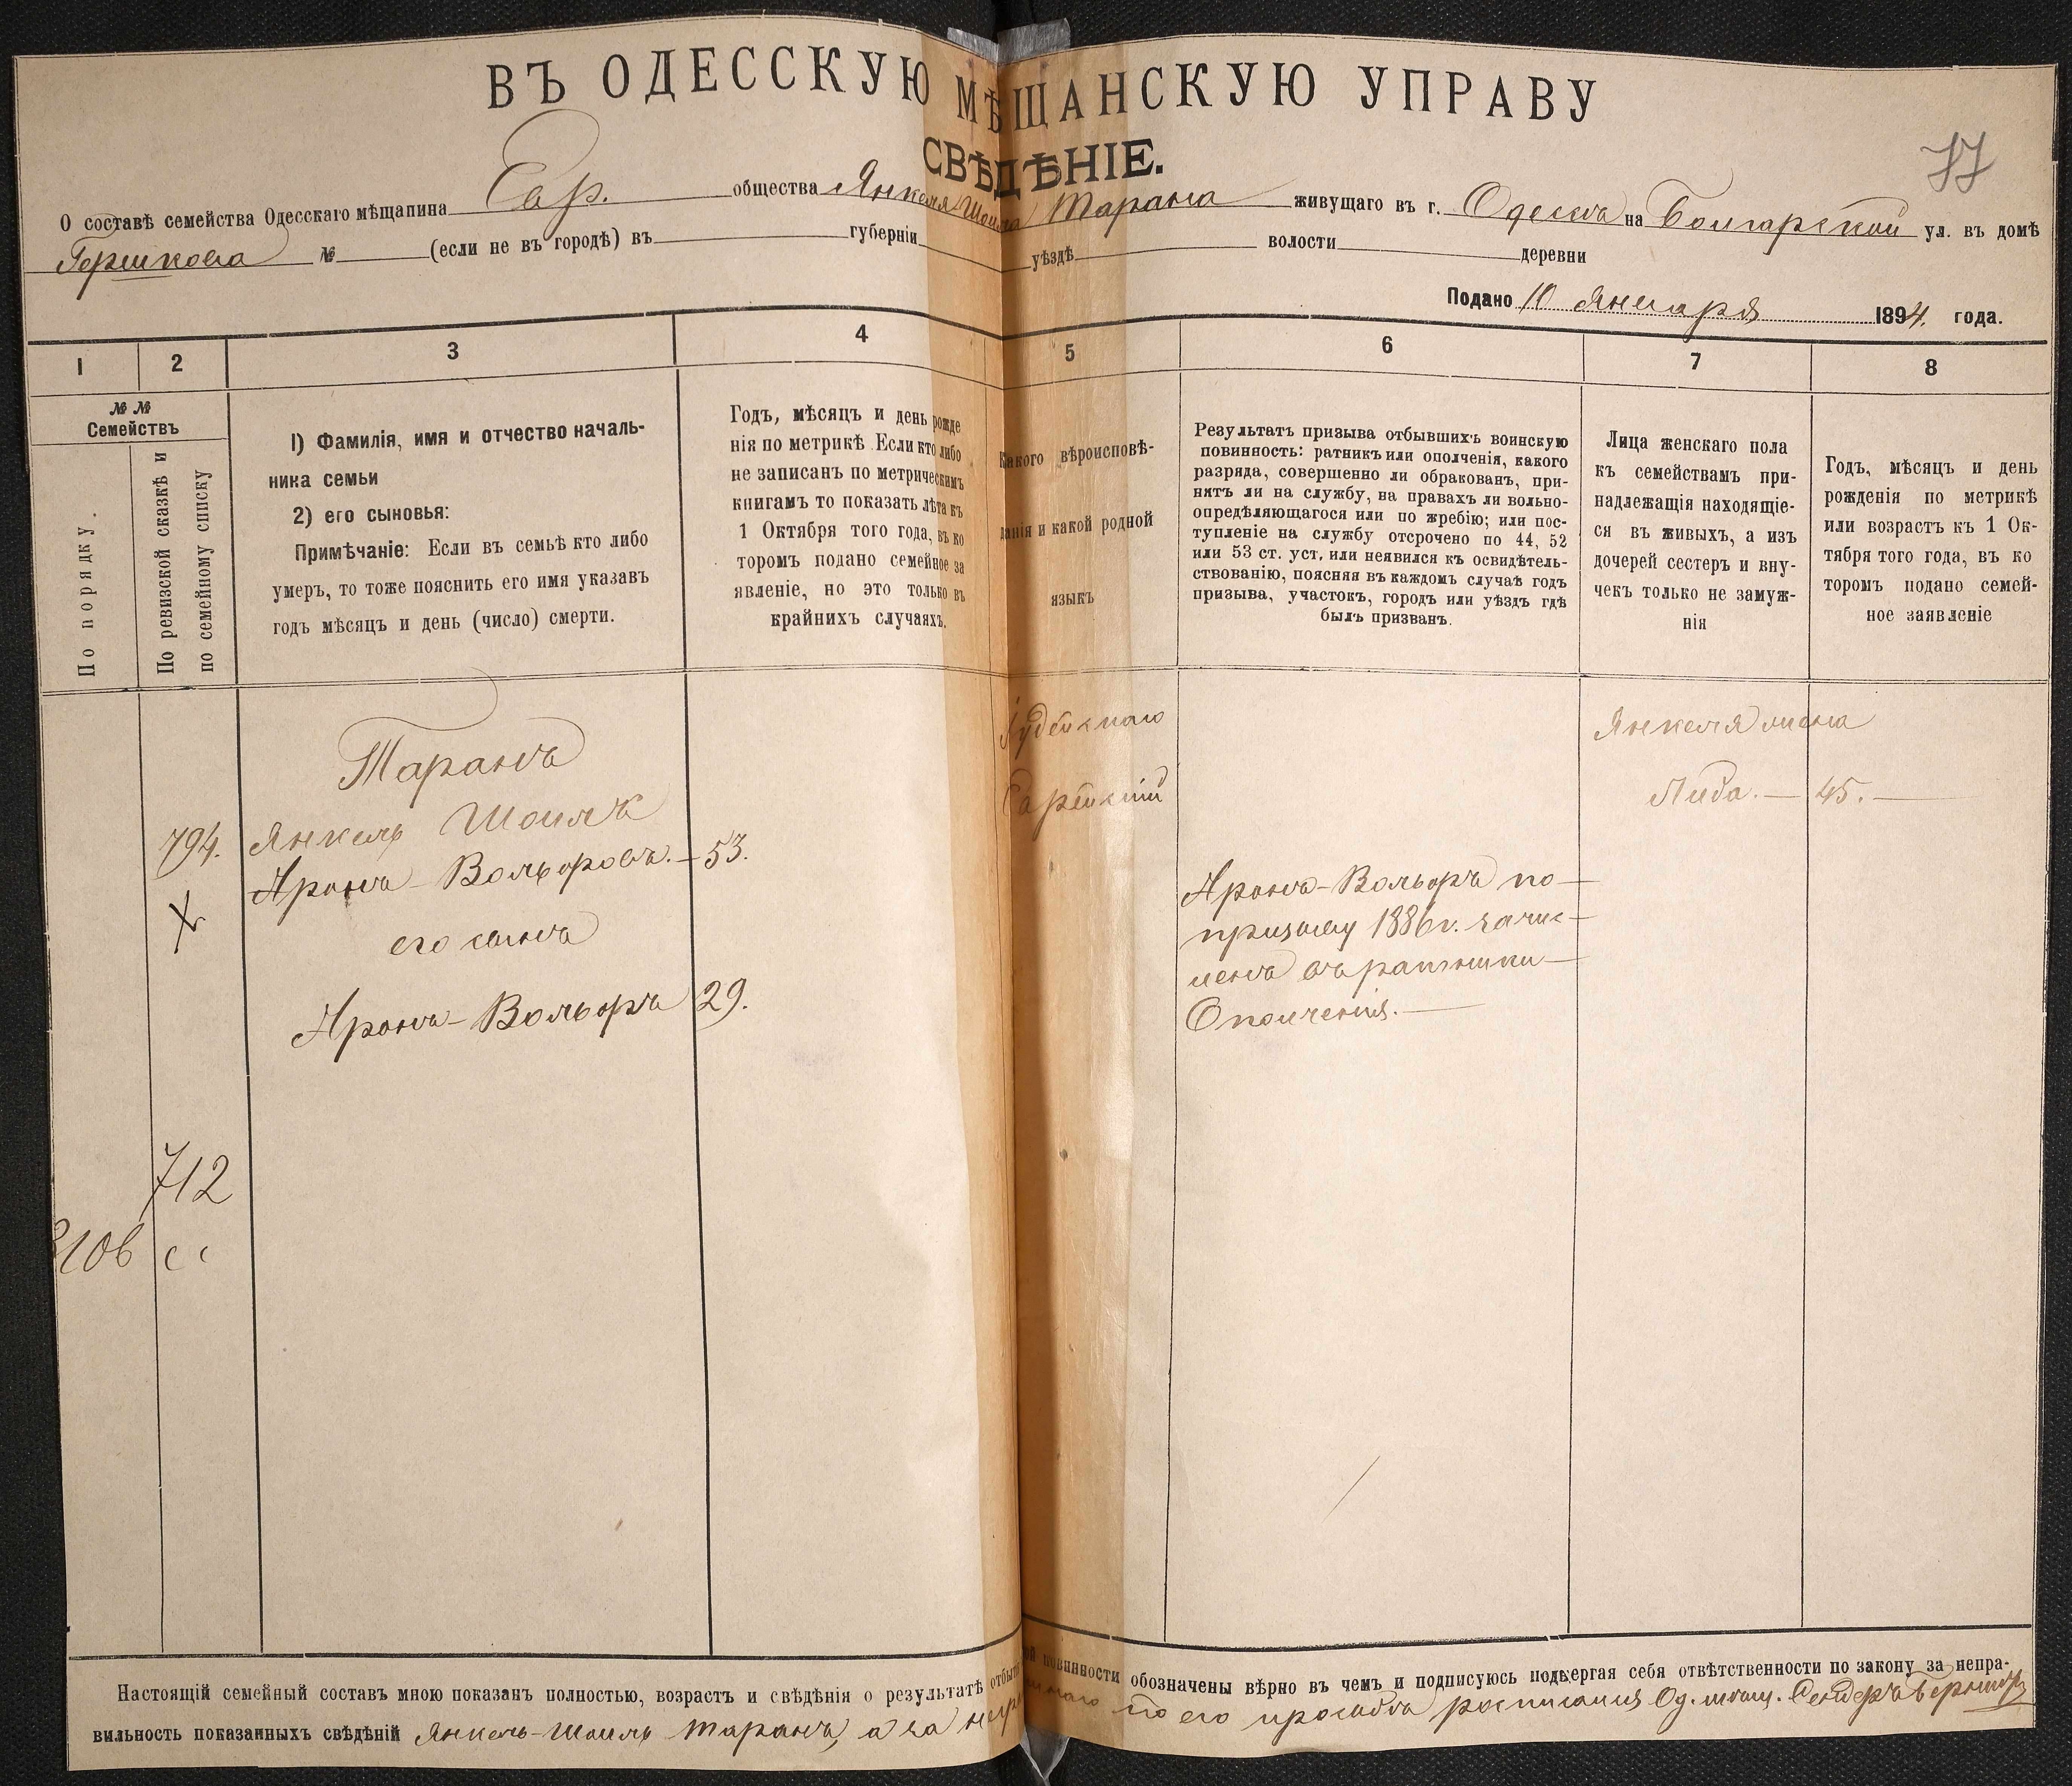 ВЪ ОДЕССКУЮ МѢЩАНСКУЮ УПРАВУ
СВѢДѢНІЕ.
77
О составѣ семейства Одесскаго мѣщанина Евр. общества Янкеля Шоиля Тарана живущаго въ г. Одессѣ на Болгарской ул. въ домѣ
Гершкова № (если не въ городѣ) въ губерніи уѣздѣ волости деревни
Подано 10 Января 1894. года.
1 2 3 4 5 6 7 8
№ №
Семействъ
По порядку.
По ревизской сказкѣ и
по семейному списку
1) Фамилія, имя и отчество началь-
ника семьи
2) его сыновья:
Примѣчаніе: Если въ семьѣ кто либо
умеръ, то тоже пояснить его имя указавъ
годъ мѣсяцъ и день (число) смерти.
Годъ, мѣсяцъ и день рожде
нія по метрикѣ. Если кто либо
не записанъ по метрическимъ
книгамъ то показать лѣта къ
1 Октября того года, въ ко
торомъ подано семейное за
явленіе, но это только въ
крайнихъ случаяхъ.
Какого вѣроисповѣ-
данія и какой родной
языкъ
Результатъ призыва отбывшихъ воинскую
повинность: ратникъ или ополченія, какого
разряда, совершенно ли обракованъ, при-
нятъ ли на службу, на правахъ ли вольно-
опредѣляющагося или по жребію; или пос-
тупленіе на службу отсрочено по 44, 52
или 53 ст. уст. или неявился къ освидѣтель-
ствованію, поясняя въ каждомъ случаѣ годъ
призыва, участокъ, городъ или уѣздъ гдѣ
былъ призванъ.
Лица женскаго пола
къ семействамъ при-
надлежащія находящіе-
ся въ живыхъ, а изъ
дочерей сестеръ и вну-
чекъ только не замуж-
нія
Годъ, мѣсяцъ и день
рожденія по метрикѣ
или возрастъ къ 1 Ок-
тября того года, въ ко
торомъ подано семей-
ное заявленіе
Таранъ
794. Янкель Шоиль
Аронъ-Вольфовъ. — 53.
его сынъ
Аронъ-Вольфъ 29.
712
Іудейскаго
Еврейскій
Аронъ-Вольфъ по
призыву 1886 г. зачис-
ленъ въ ратники
Ополченія.
Янкеля жена
Либа. — 45.
Настоящій семейный составъ мною показанъ полностью, возрастъ и свѣдѣнія о результатѣ отбытія повинности обозначены вѣрно въ чемъ и подписуюсь подвергая себя отвѣтственности по закону за непра-
вильность показанныхъ свѣдѣній Янкель-Шоиль Таранъ, а за по его просьбѣ росписался Од. мѣщ.